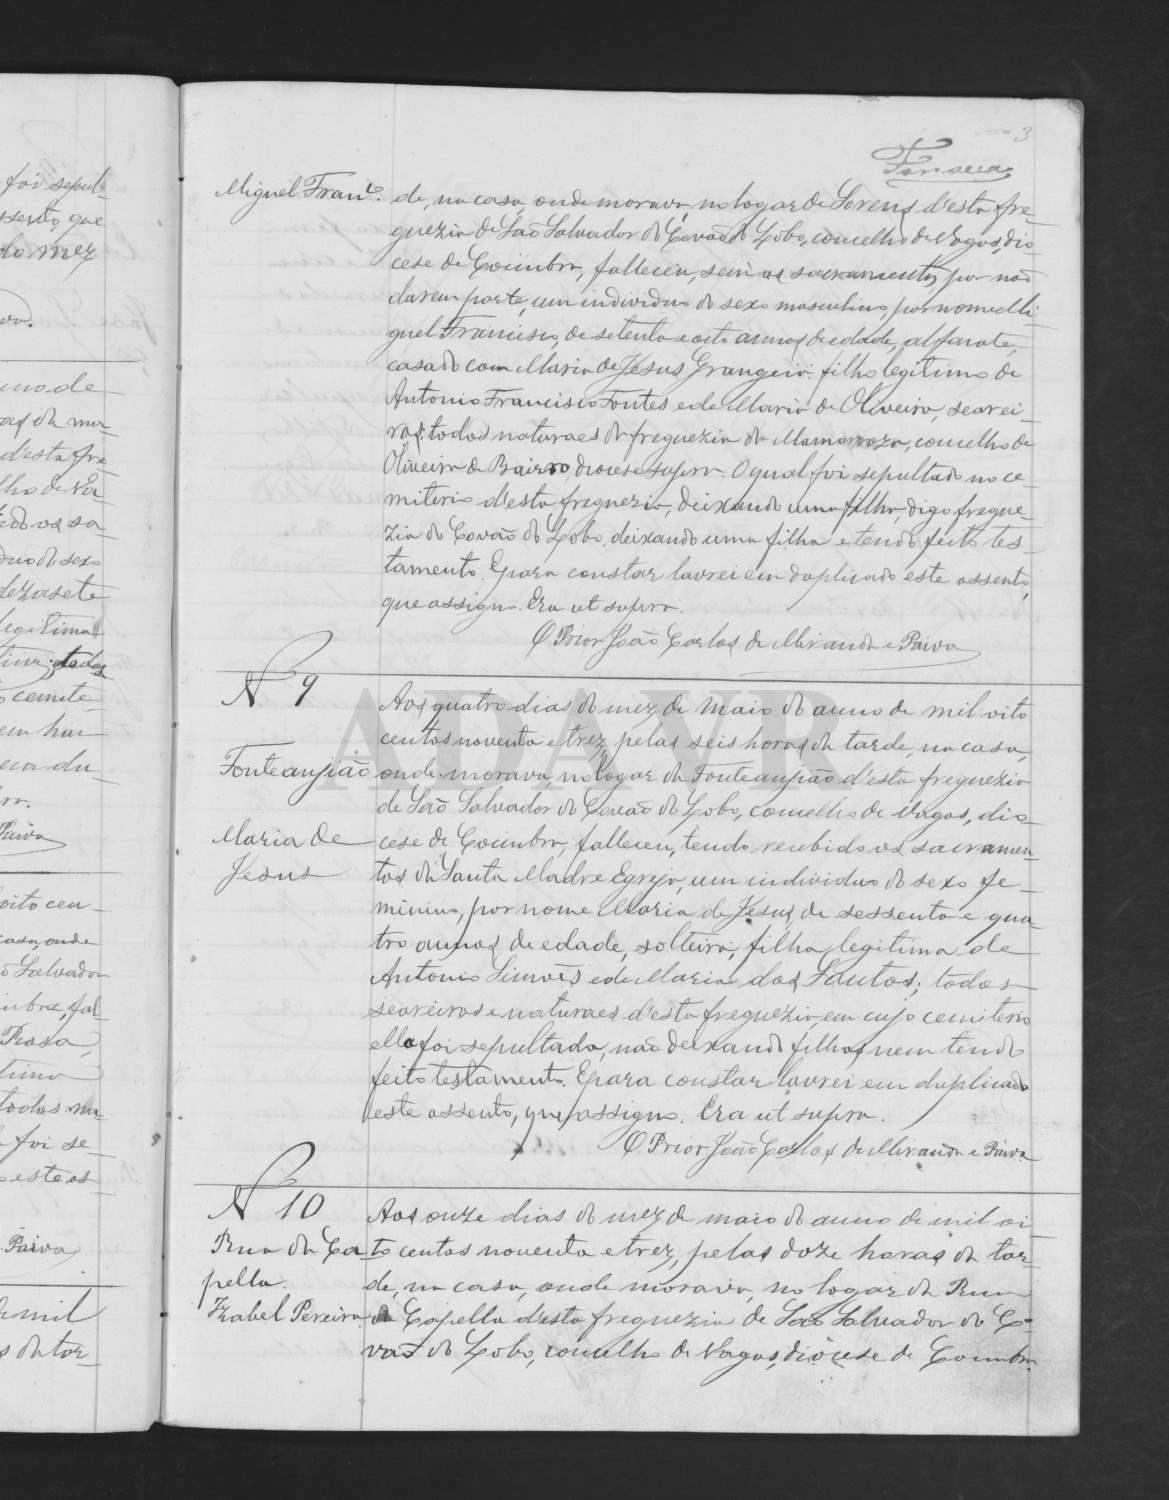 foi sepul-
ssento, que
do mez
iva.
uno de
as da ma-
d'esta fre
lho de Va
do os sa
duo do sexo
dezasete
legitima
tina; todos
o cemite-
em ha-
Paiva
oito cen-
casa, onde
o Salvador
imbra, fal-
Rosa,
tima
todos na
foi se-
este as-
Paiva
mil
s da tar-
3
Fonseca
Miguel Fran.co
de, na casa, onde morava, no logar de Sorens d'esta fre-
guezia de São Salvador do Covão do Lobo, concelho de Vagos, dio-
cese de Coimbra, falleceu, sem os sacramentos, por não
darem parte, um individuo do sexo masculino, por nome Mi-
guel Francisco, de setenta e oito annos de edade, alfaiate,
casado com Maria de Jesus Grangeia: filho legitimo de
Antonio Francisco Fontes e de Maria de Oliveira, searei-
ros; todos naturaes da freguezia da Mamarroza, concelho de
Oliveira do Bairro, diocese supra. O qual foi sepultado no ce-
miterio d'esta freguezia, deixando uma filha, digo fregue-
zia do Covão do Lobo, deixando uma filha e tendo feito tes-
tamento. E para constar lavrei em duplicado este assento,
que assigno. Era ut supra.
O Prior João Carlos de Miranda e Paiva
ADAVR
Nº 9
Fonteanjião
Maria de
Jesus
Aos quatro dias do mez de Maio do anno de mil oito
centos noventa e trez, pelas seis horas da tarde, na casa,
onde morava, no logar da Fonteanjião d'esta freguezia
de São Salvador do Covão do Lobo, concelho de Vagos, dio-
cese de Coimbra, falleceu, tendo recebido os sacramen-
tos da Santa Madre Egreja, um individuo do sexo fe-
minino, por nome Maria de Jesus, de sessenta e qua-
tro annos de edade, solteira, filha legitima de
Antonio Simões e de Maria dos Santos; todos
seareiros e naturaes d'esta freguezia, em cujo cemiterio
ella foi sepultada, não deixando filhos, nem tendo
feito testamento. E para constar lavrei em duplicado
este assento, que assigno. Era ut supra.
O Prior João Carlos de Miranda e Paiva
Nº 10
Rua da Ca-
pella.
Izabel Pereira
Aos onze dias do mez de maio do anno de mil oi
to centos noventa e trez, pelas doze horas da tar-
de, na casa, onde morava, no logar da Rua
da Capella d'esta freguezia de São Salvador do Co-
vão do Lobo, concelho de Vagos, diocese de Coimbra